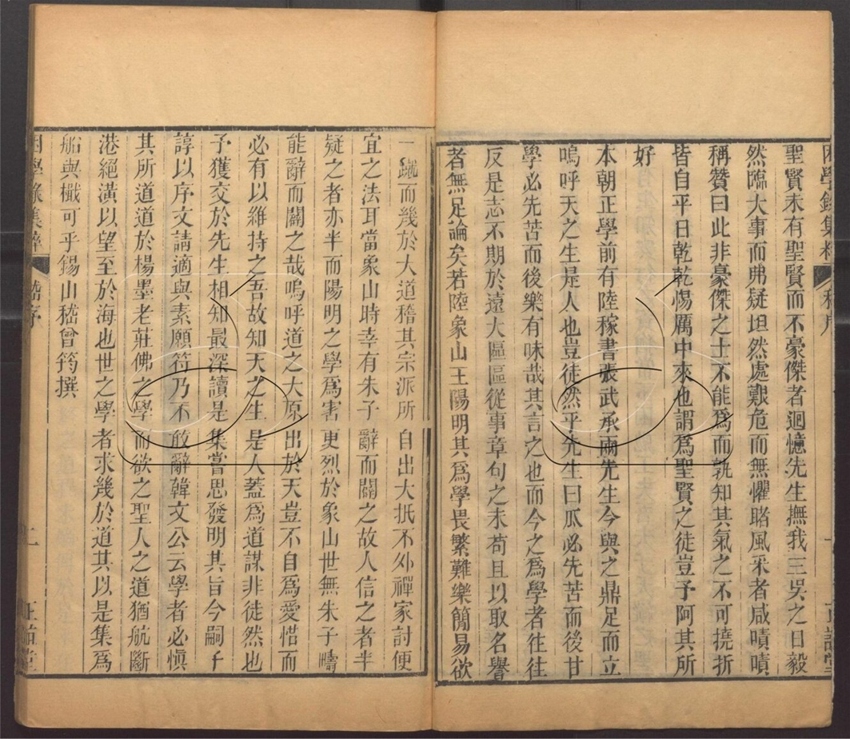 聖賢未有聖賢而不豪傑者迴憶先生撫我三吳之日毅
然臨大事而弗疑坦然處艱危而無懼睹風采者咸嘖嘖
稱贊曰此非豪傑之士不能爲而孰知其氣之不可撓折
皆自平日乾乾惕厲中來也謂爲聖賢之徒豈予阿其所
好
本朝正學前有陸稼書張武承兩先生今與之鼎足而立
嗚呼天之生是人也豈徒然乎先生曰瓜必先苦而後甘
學必先苦而後樂有味哉其言之也而今之爲學者往往
反是志不期於遠大區區從事章句之末苟且以取名譽
者無足論矣若陸象山王陽明其爲學畏繁難樂簡易欲
一蹴而幾於大道稽其宗派所自出大抵不外禪家討便
宜之法耳當象山時幸有朱子辭而闢之故人信之者半
疑之者亦半而陽明之學爲害更烈於象山世無朱子疇
能辭而闢之哉嗚呼道之大原出於天豈不自爲愛惜而
必有以維持之吾故知天之生是人蓋爲道謀非徒然也
予獲交於先生相知最深讀是集嘗思發明其旨今嗣子
諄以序文請適與素願符乃不敢辭韓文公云學者必慎
其所道道於楊墨老莊佛之學而欲之聖人之道猶航斷
港絕潢以望至於海也世之學者求幾於道其以是集爲
船與檝可乎錫山嵇曾筠撰
困學錄集粹
嵇序
二
正誼堂